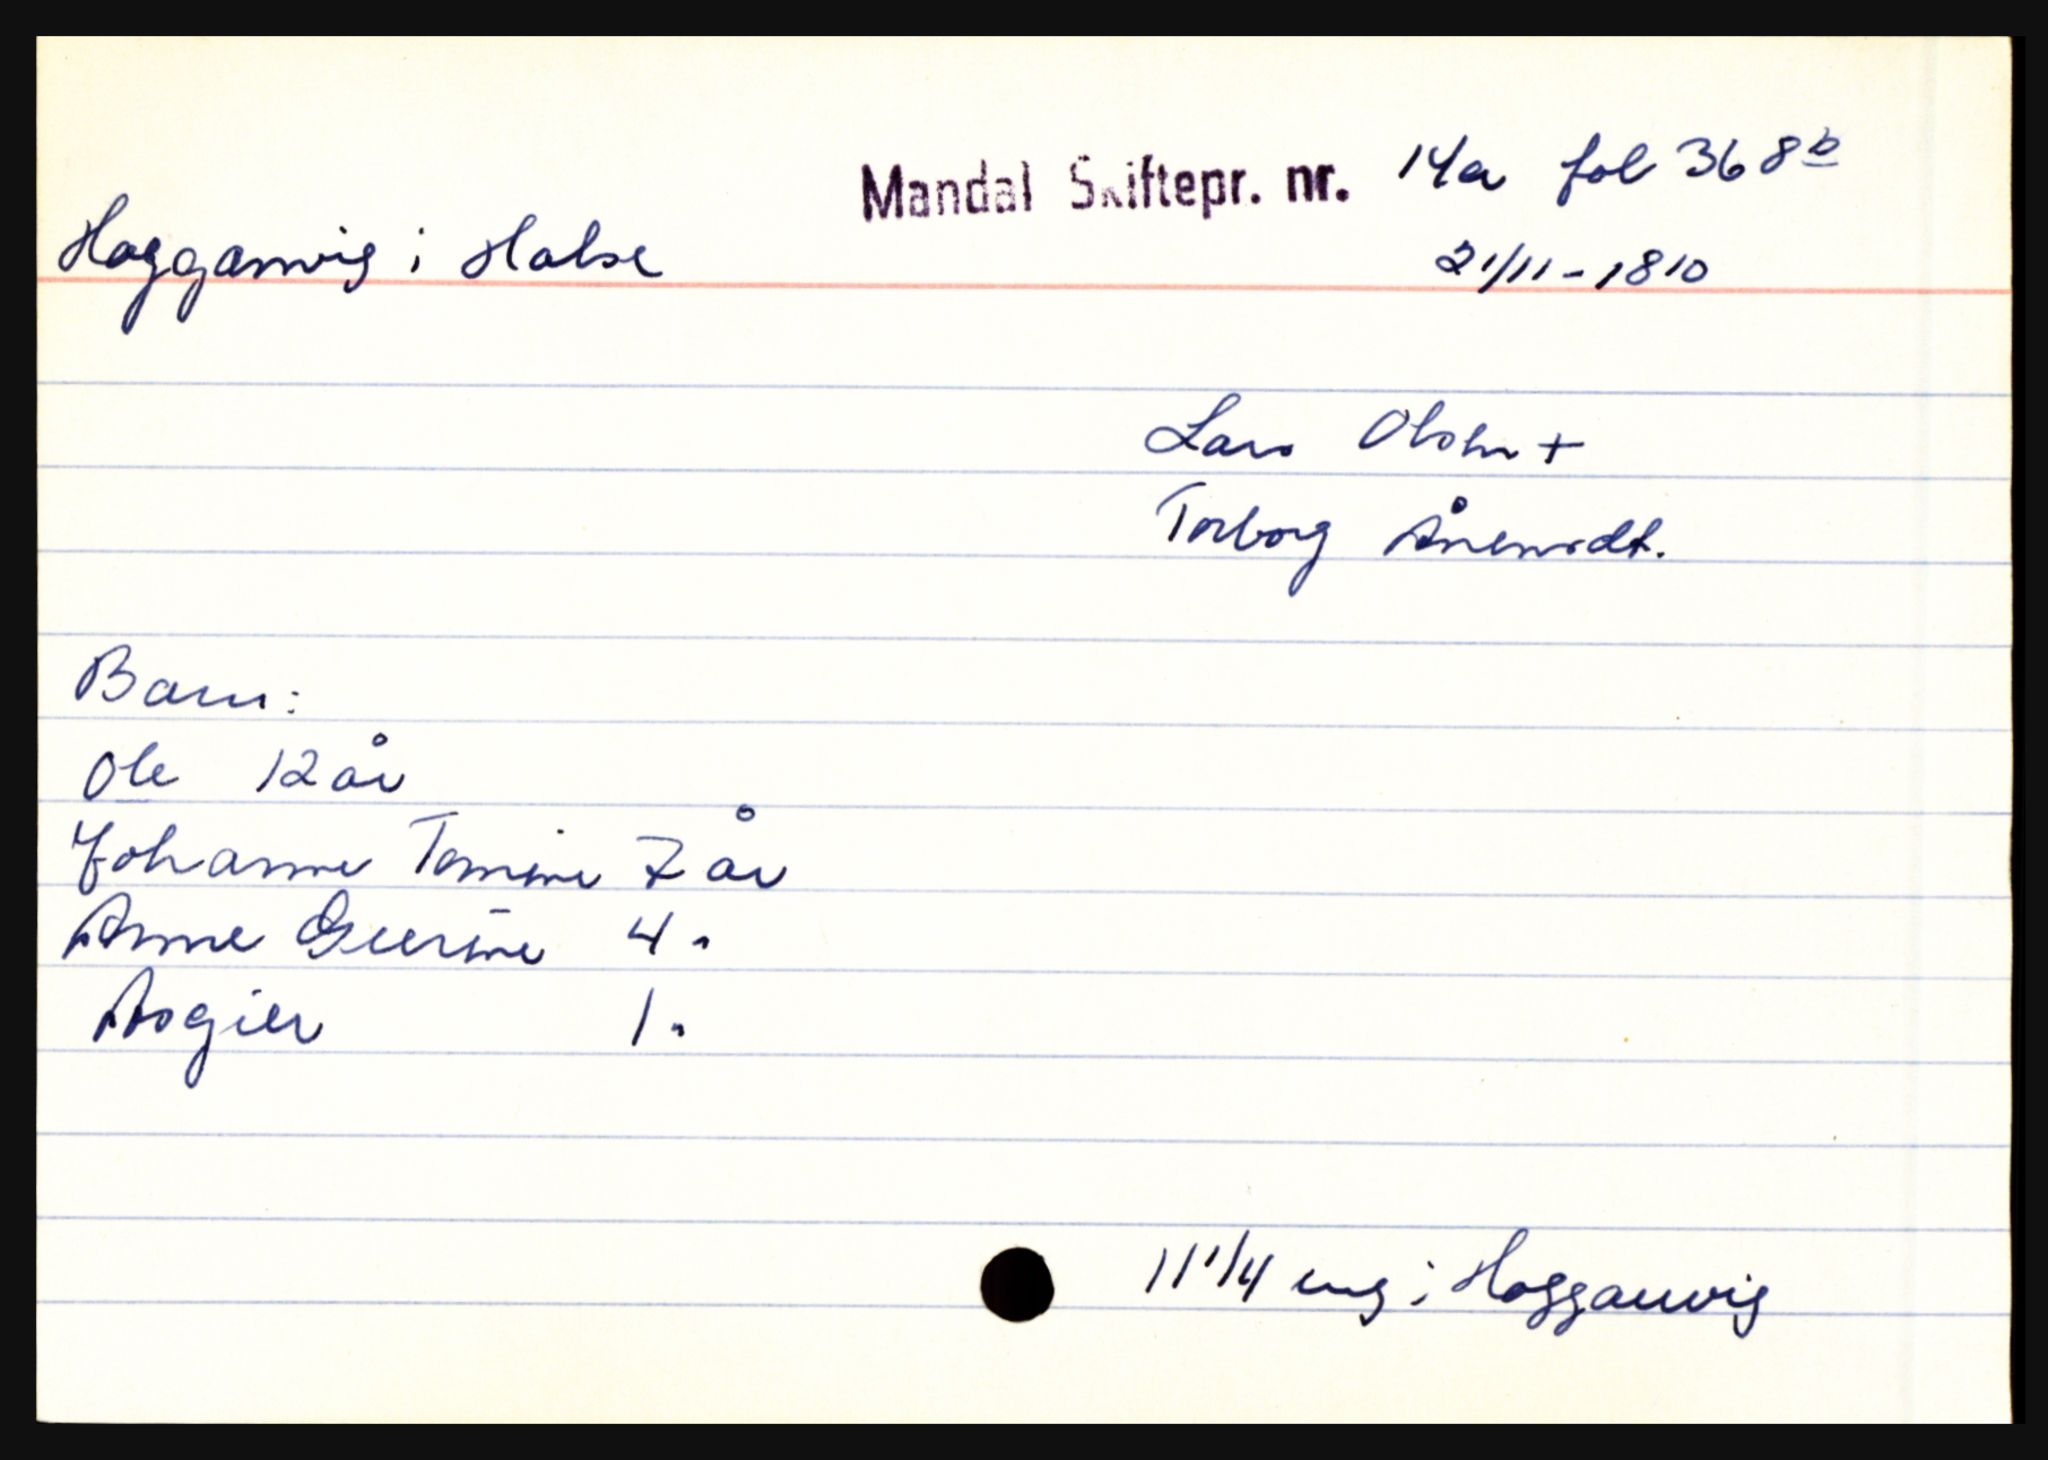 Mandal Skiftepr. nr. 14a fol 368b
Hogganvig i Halse 21/11-1810
Lars Olsen +
Torborg Ånensdt.
Barn:
Ole 12 år
Johanne Tomine 7 år
Anne Geerine 4 "
Asgier 1 "
11 1/4 eng i Hogganvig